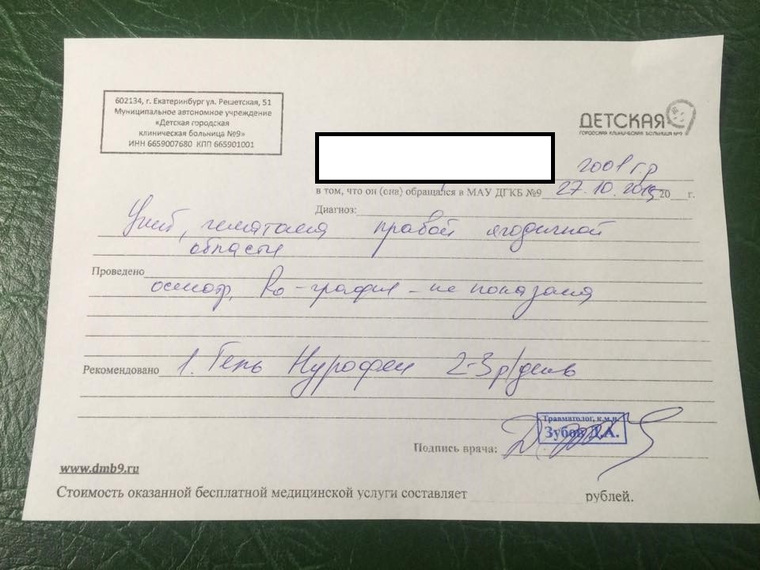 602134, г. Екатеринбург ул. Решетская, 51
Муниципальное автономное учреждение
«Детская городская
клиническая больница №9»
ИНН 6659007680 КПП 665901001
ДЕТСКАЯ
ГОРОДСКАЯ КЛИНИЧЕСКАЯ БОЛЬНИЦА №9
2001 г.р
в том, что он (она) обращался в МАУ ДГКБ №9 27.10.2015 20 г.
Диагноз:
Ушиб, гематома правой ягодичной
области
Проведено
осмотр, Ro-графия - не показана
Рекомендовано 1. Гель Нурофен 2-3 р/день
Травматолог, к.м.н.
Зубов Д.А.
Подпись врача:
www.dmb9.ru
Стоимость оказанной бесплатной медицинской услуги составляет рублей.